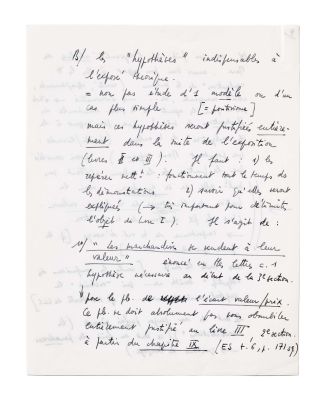 B/ les "hypothèses" indispensables à
l'exposé théorique.
= non pas étude d'1 modèle ou d'un
cas plus simple. [= positivisme]
mais ces hypothèses seront justifiées entière-
ment dans la suite de l'exposition
(livres II et III). Il faut : 1) les
repérer nett^t : fonctionnent tout le temps de
les démonstrations 2) savoir qu'elles seront
expliquées (→ très important pour délimiter
l'objet du livre I). Il s'agit de :
"les marchandises se vendent à leur
valeur" énoncé en ttes lettres c. 1
hypothèse nécessaire au début de la 3e section.
pose le pb. de l'écart valeur/prix.
Ce pb. ne doit absolument pas nous
entièrement justifié au livre III, 2e section
à partir du chapitre IX (ES t. 6, p. 171